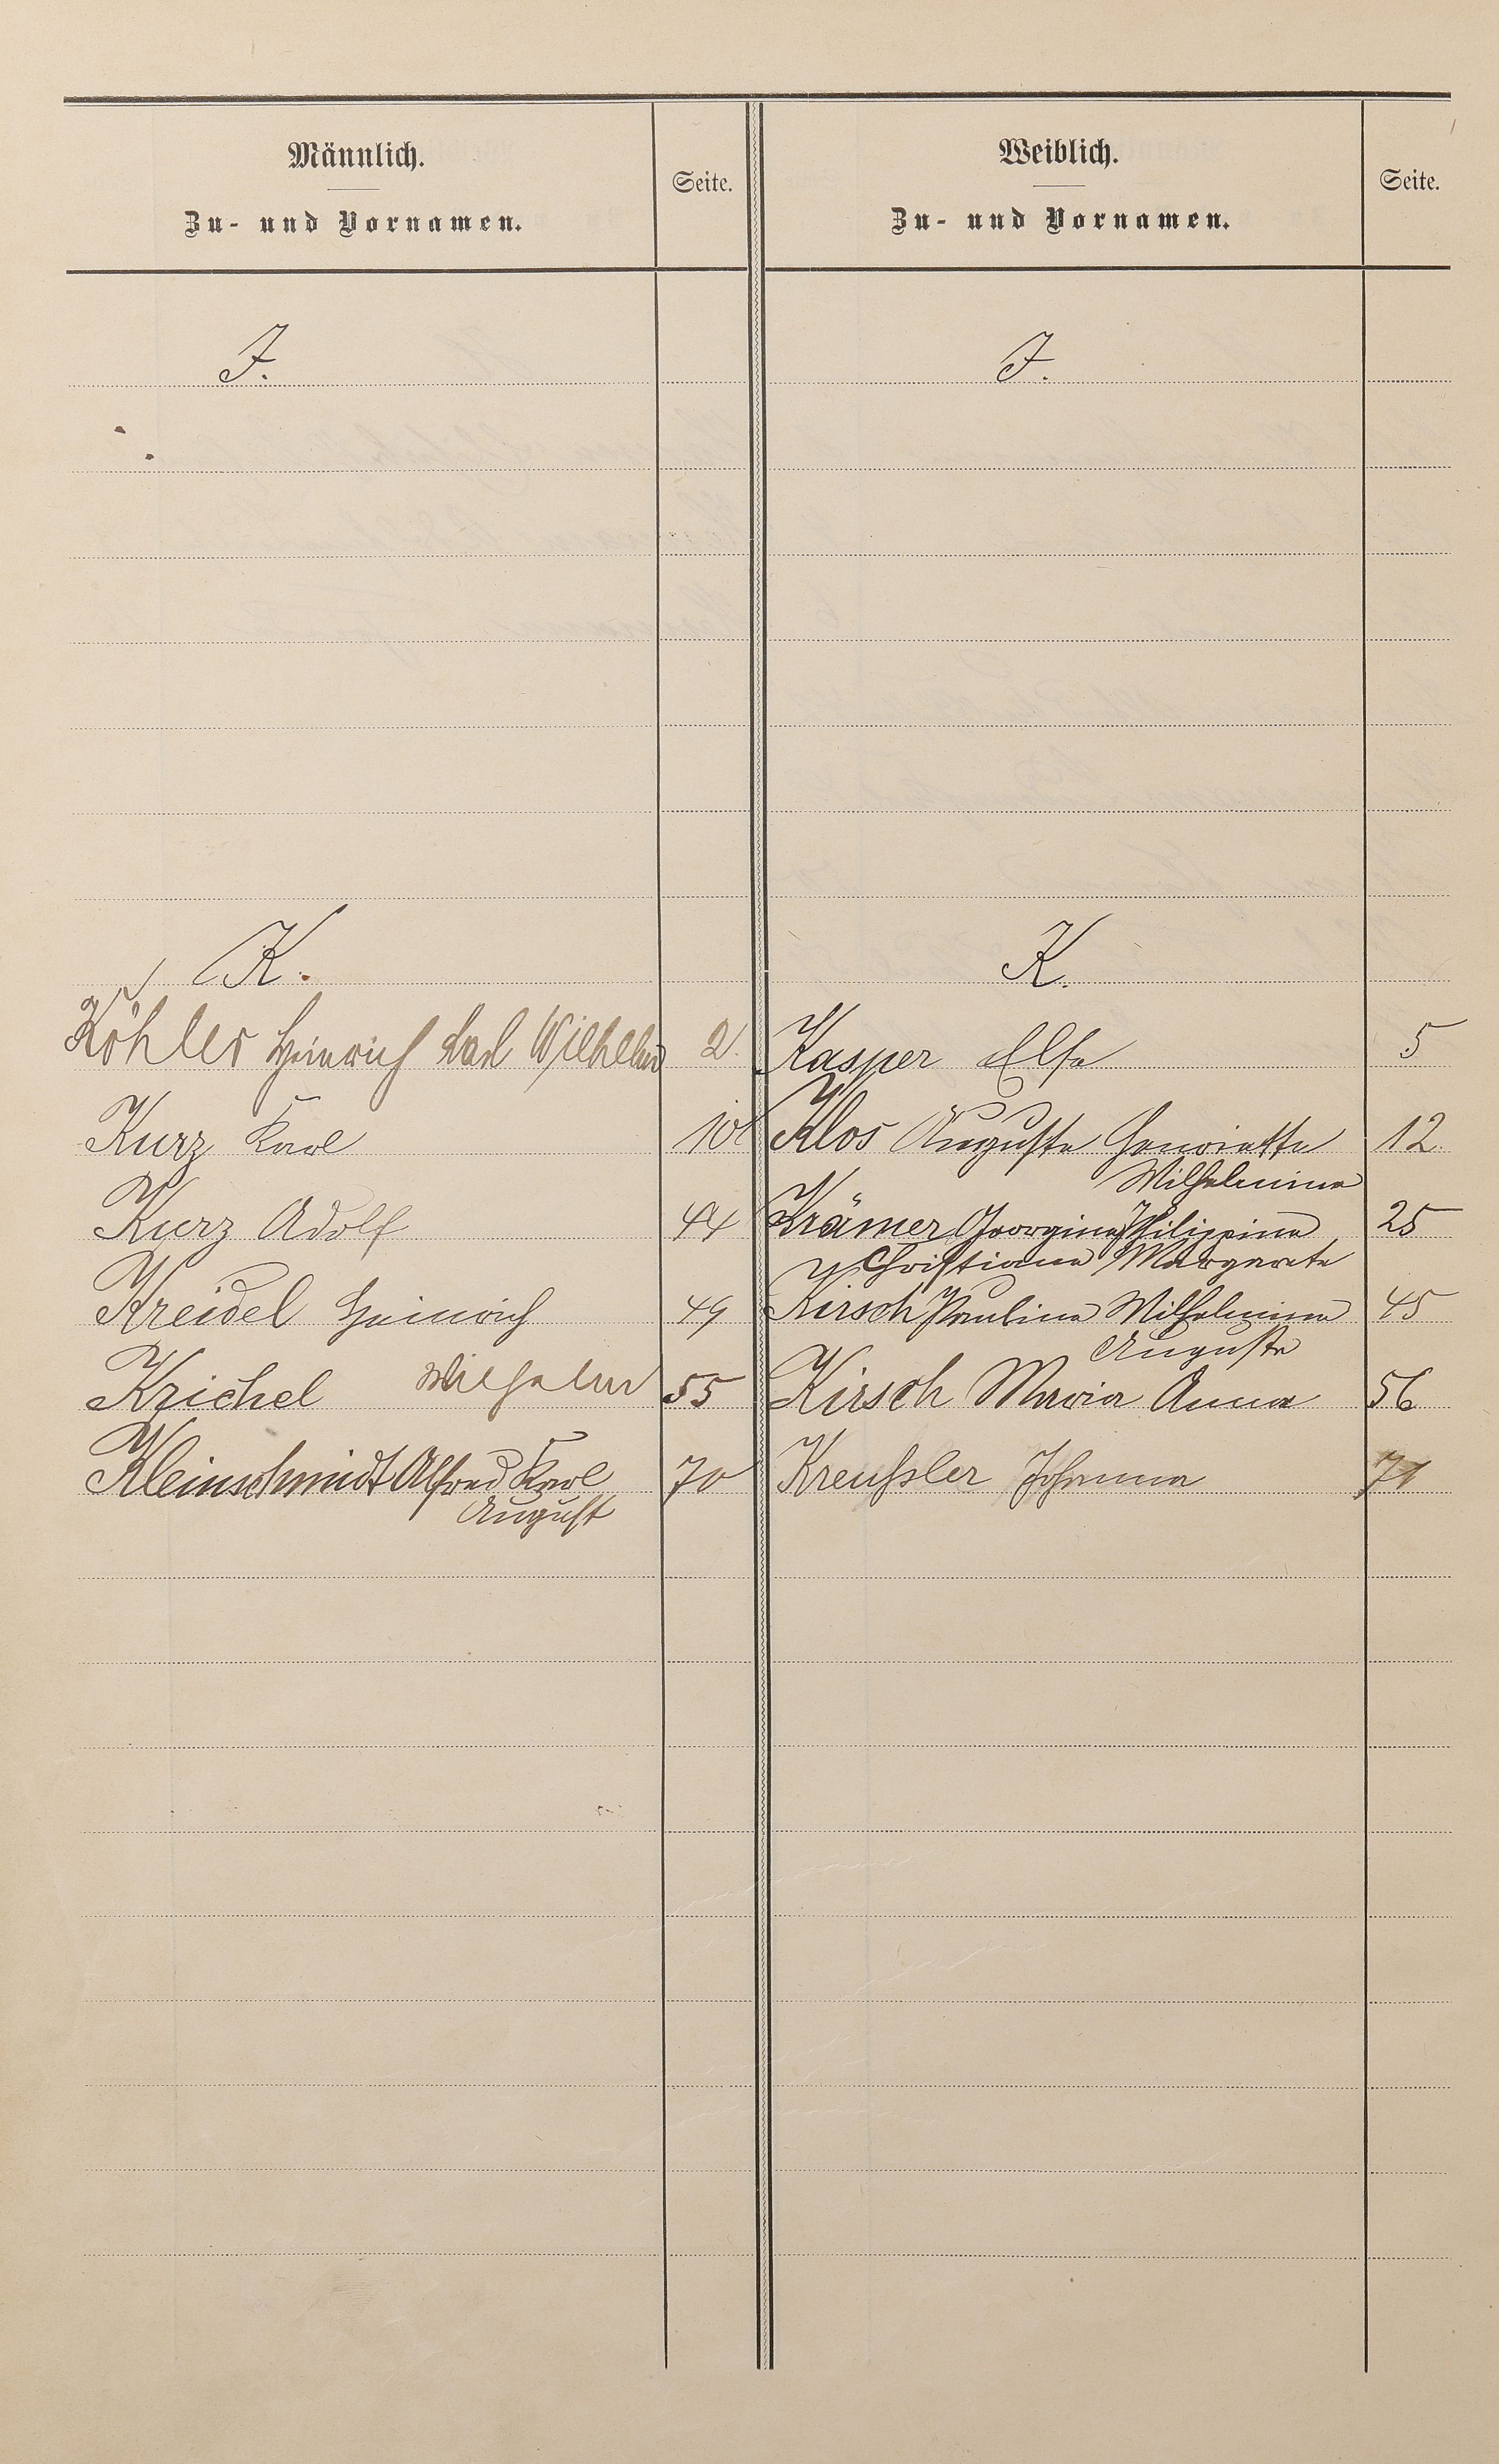 Männlich.
Zu- und Vornamen.
Seite.
Weiblich.
Zu- und Vornamen.
Seite.
J.
J.
K.
K.
Köhler Heinrich Karl Wilhelm 2.
Kasper Else 5
Kurz Karl 10
Klos Auguste Henriette 12.
Wilhelmine
Kurz Adolf 44
Krämer Georgine Philippine 25
Christiane Margarete
Kreidel Heinrich 49
Kirsch Pauline Wilhelmine 45
Auguste
Krichel Wilhelm 55
Kirsch Maria Anna 56
Kleinschmidt Alfred Karl 70
August
Kreußler Johanna 71